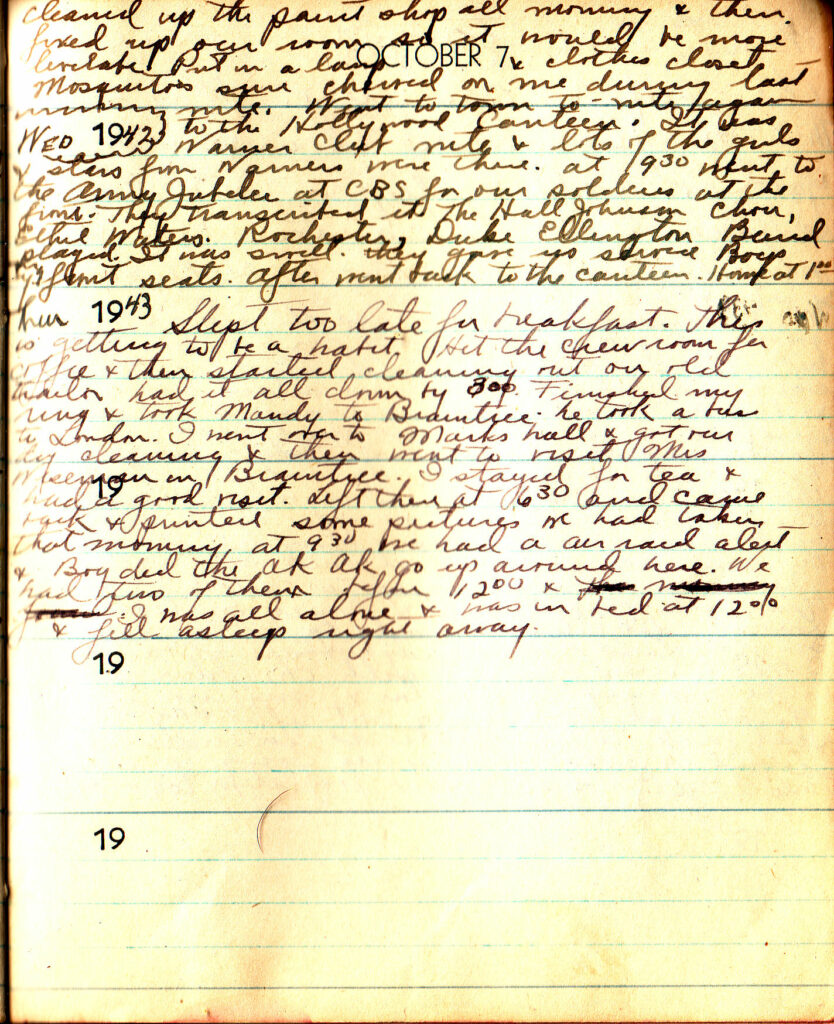 cleaned up the paint shop all morning & then
fixed up our room so it would be more
OCTOBER 7
liveable. Put in a lamp & clothes closet
Mosquitos sure chewed on me during last
nite. Went to town to-nite again
WED 1942 to the Hollywood Canteen. It was
Warner Club nite & lots of the girls
& stars from Warners were there. at 930 went to
the Army Jubilee at CBS for our soldiers at the
front. They transcribed it. The Hall Johnson Choir,
Ethel Waters. Rochester, Duke Ellington Band
played. It was swell. they gave us service Boys
front seats. After went back to the canteen. Home at 100
Thur 1943 Slept too late for breakfast. This
is getting to be a habit. Hit the crew room for
coffee & then started cleaning out our old
trailor had it all down by 300. Finished my
ring & took Mandy to Braintree. he took a bus
to London. I went over to Marks hall & got our
dry cleaning & then went to visit Mrs
in Braintree. I stayed for tea &
19
had a good visit. Left there at 630 and came
back & printed some pictures we had taken
that morning. at 930 we had a air raid alert
& Boy did the AK AK go up around here. We
had two of them after 1200 &
I was all alone & was in bed at 1200
& fell asleep right away.
19
19